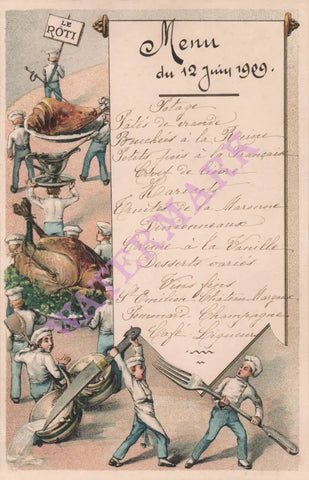 LE
ROTI
Menu
du 12 Juin 1909.
Potage
Pâtés de viande
Bouchées à la Reine
Petits pois à la Française
Haricots
Truites de la Maronne
Crème à la Vanille
Desserts variés
Vins fins
St Emilion Château Margaux
Pommard Champagne
Café Liqueurs
WATERMARK